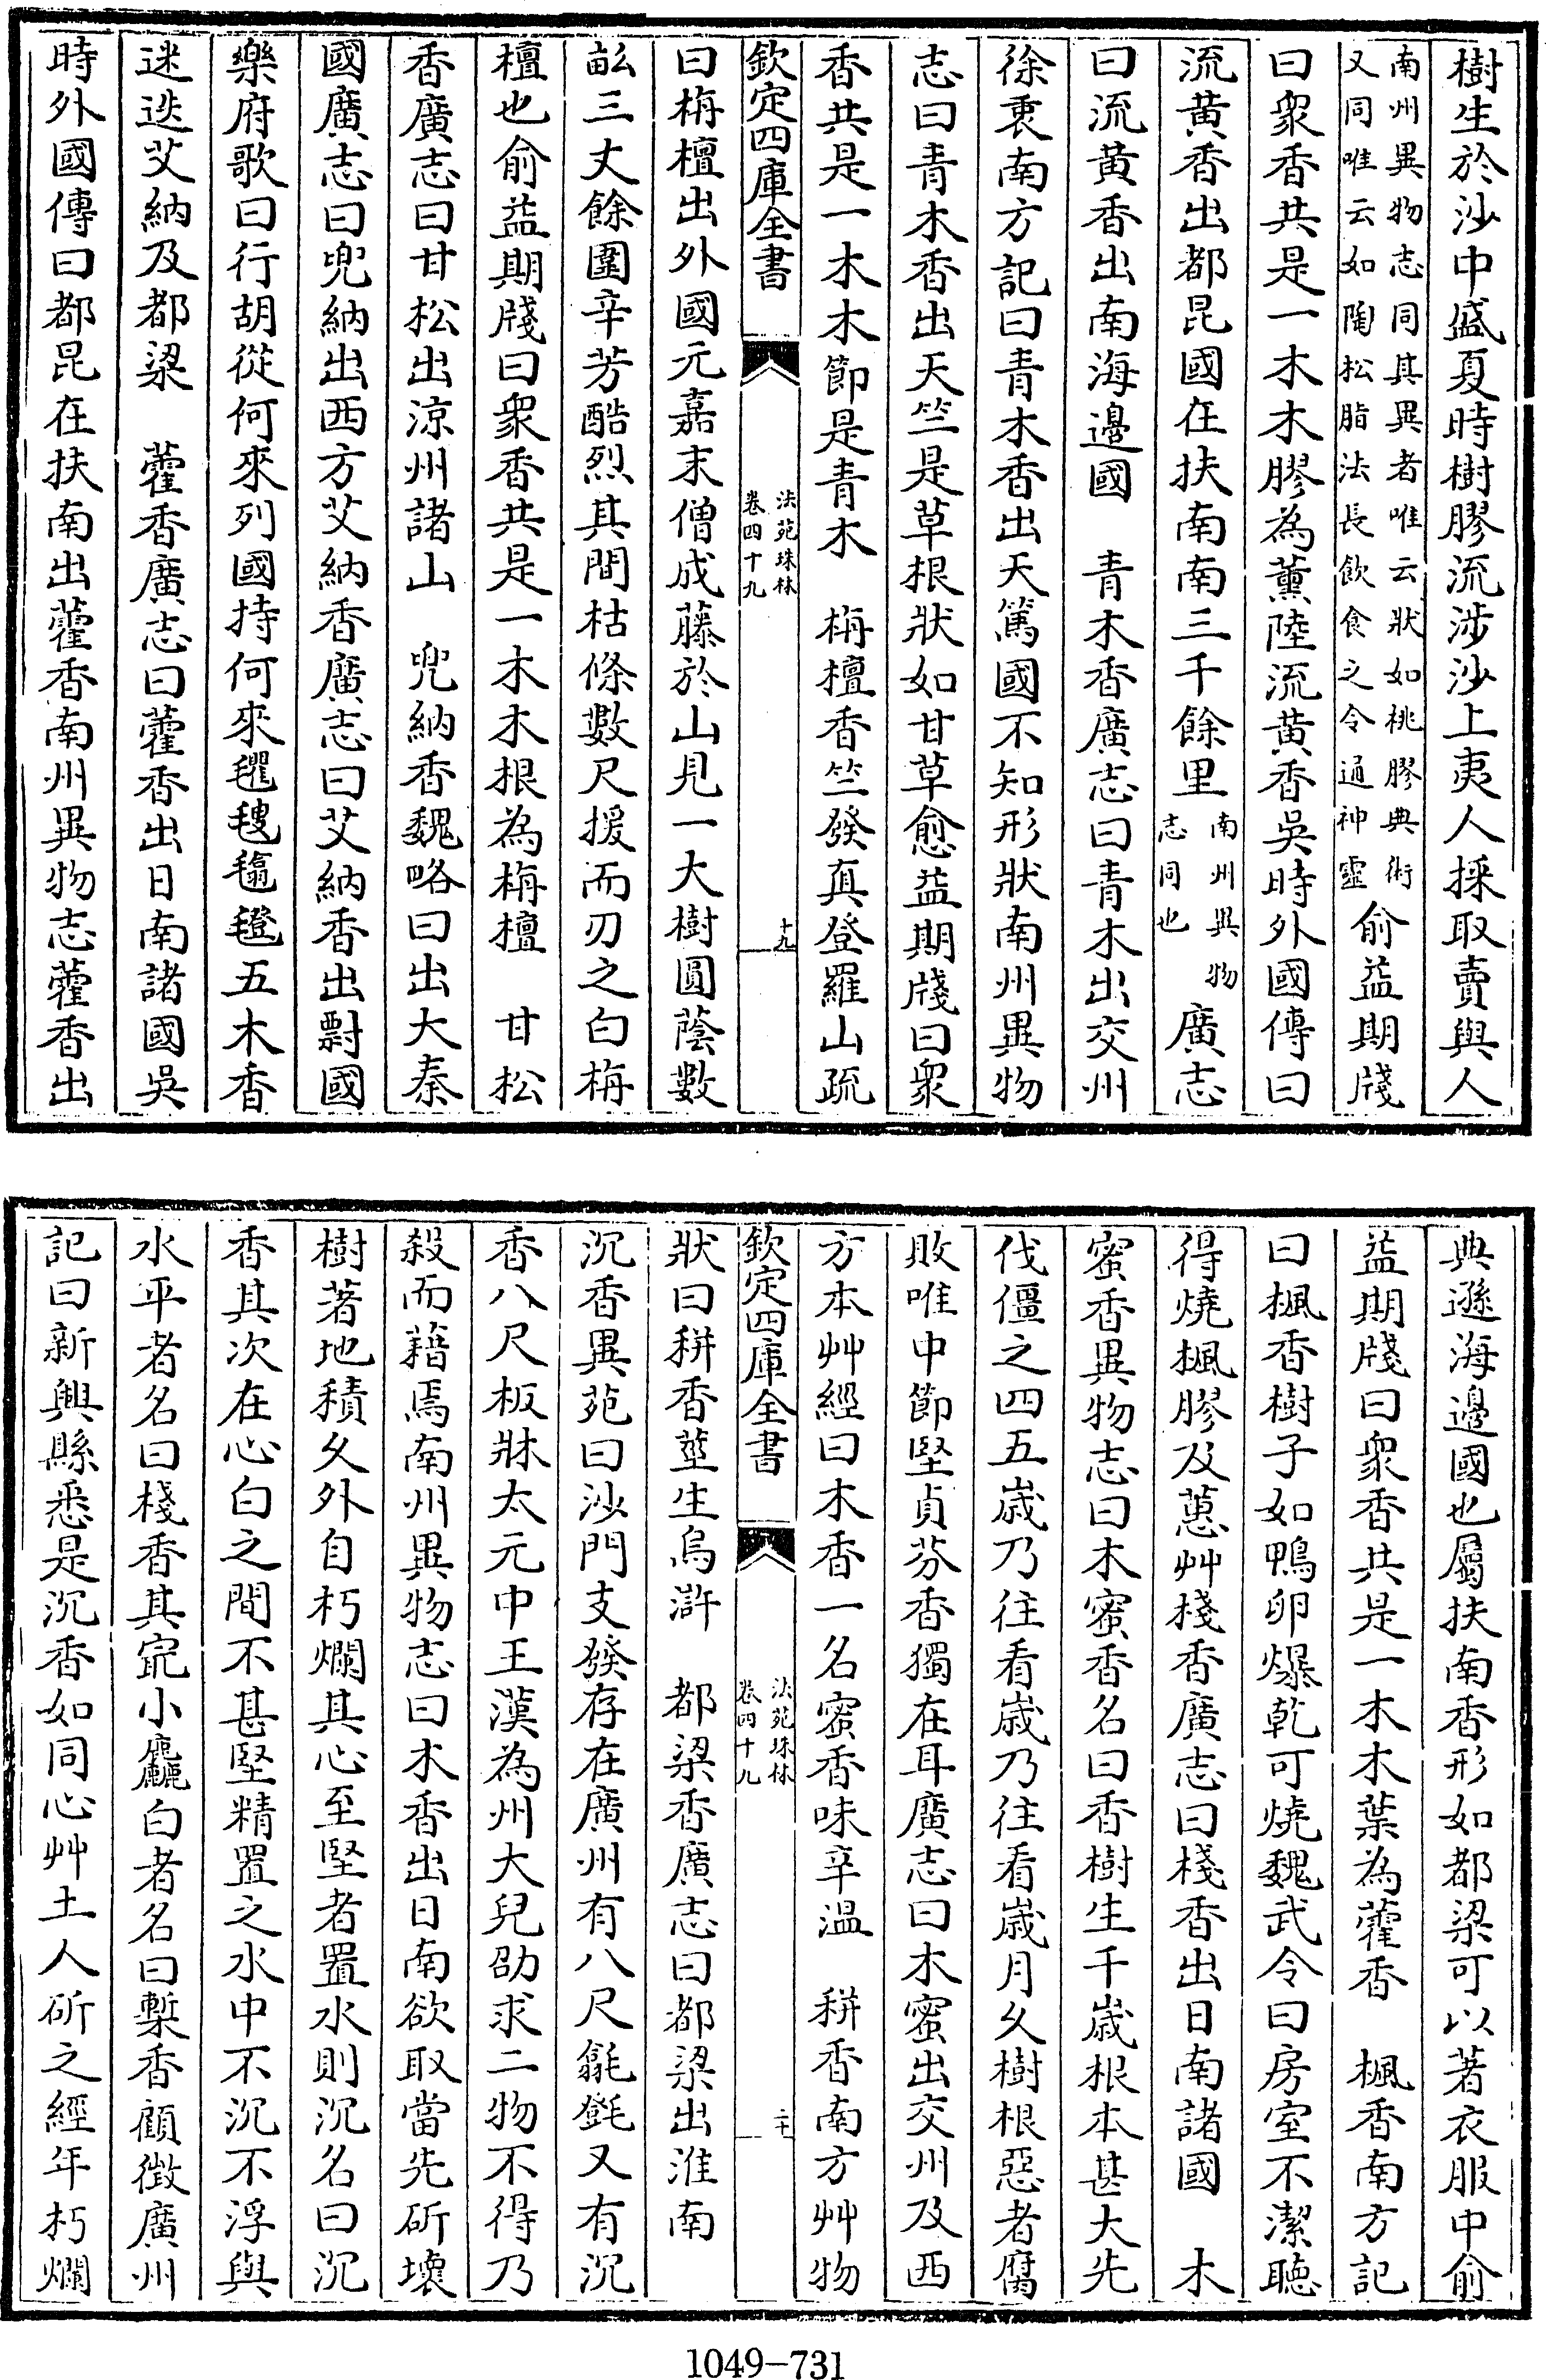 樹生於沙中盛夏時樹膠流涉沙上夷人採取賣與人
南州異物志同其異者唯云狀如桃膠典術
又同唯云如陶松脂法長飲食之令通神靈
俞益期牋
曰衆香共是一木木膠為薰陸流黄香吳時外國傳曰
流黄香出都昆國在扶南南三千餘里
南州異物
志同也
廣志
曰流黄香出南海邊國　青木香廣志曰青木出交州
徐衷南方記曰青木香出天篤國不知形狀南州異物
志曰青木香出天竺是草根狀如甘草俞益期牋曰衆
香共是一木木節是青木　栴檀香竺發真登羅山疏
欽定四庫全書
法苑珠林
卷四十九
十九
曰栴檀出外國元嘉末僧成藤於山見一大樹圓蔭數
畝三丈餘圍辛芳酷烈其間枯條數尺援而刃之白栴
檀也俞益期牋曰衆香共是一木木根為栴檀　甘松
香廣志曰甘松出涼州諸山　兜納香魏略曰出大秦
國廣志曰兜納出西方艾納香廣志曰艾納香出剽國
樂府歌曰行胡從何來列國持何來氍毹毾㲪五木香
迷迭艾納及都梁　藿香廣志曰藿香出日南諸國吳
時外國傳曰都昆在扶南出藿香南州異物志藿香出
典遜海邊國也屬扶南香形如都梁可以著衣服中俞
益期牋曰衆香共是一木木葉為藿香　楓香南方記
曰楓香樹子如鴨卵爆乾可燒魏武令曰房室不潔聽
得燒楓膠及蕙艸棧香廣志曰棧香出日南諸國　木
蜜香異物志曰木蜜香名曰香樹生千歲根本甚大先
伐僵之四五歲乃往看歲乃往看歲月久樹根惡者腐
敗唯中節堅貞芬香獨在耳廣志曰木蜜出交州及西
方本艸經曰木香一名蜜香味辛温　耕香南方艸物
欽定四庫全書
法苑珠林
卷四十九
二十
狀曰耕香莖生烏滸　都梁香廣志曰都梁出淮南
沉香異苑曰沙門支發存在廣州有八尺㲪㲪又有沉
香八尺板牀太元中王漢為州大兒劭求二物不得乃
殺而藉焉南州異物志曰木香出日南欲取當先斫壞
樹著地積久外自朽爛其心至堅者置水則沉名曰沉
香其次在心白之間不甚堅精置之水中不沉不浮與
水平者名曰棧香其㝡小麤白者名曰槧香顧徵廣州
記曰新興縣悉是沉香如同心艸土人斫之經年朽爛
1049-731